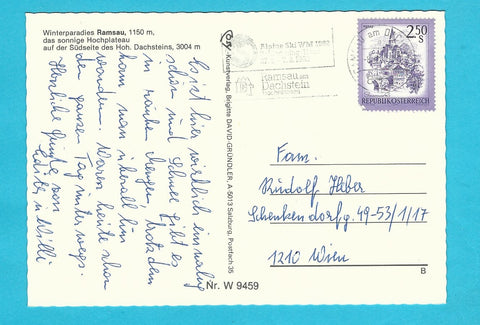 Winterparadies Ramsau, 1150 m,
das sonnige Hochplateau
auf der Südseite des Hoh. Dachsteins, 3004 m
Es ist hier wirklich einmalig
schön und Schnee gibt es
in rauhen Mengen, trotzdem
kann man überall hin
wandern. Waren heute schon
den ganzen Tag unterwegs.
Herzliche Grüße von
Edith u Willi
Kunstverlag, Brigitte DAVID-GRÜNDLER, A-5013 Salzburg, Postfach 35
Nr. W 9459
Alpine Ski WM 1982
Ramsau am
Dachstein
2.50
S
REPUBLIK ÖSTERREICH
Fam.
Rudolf Huber
Schenkendorfg. 49-53/1/17
1210 Wien
B